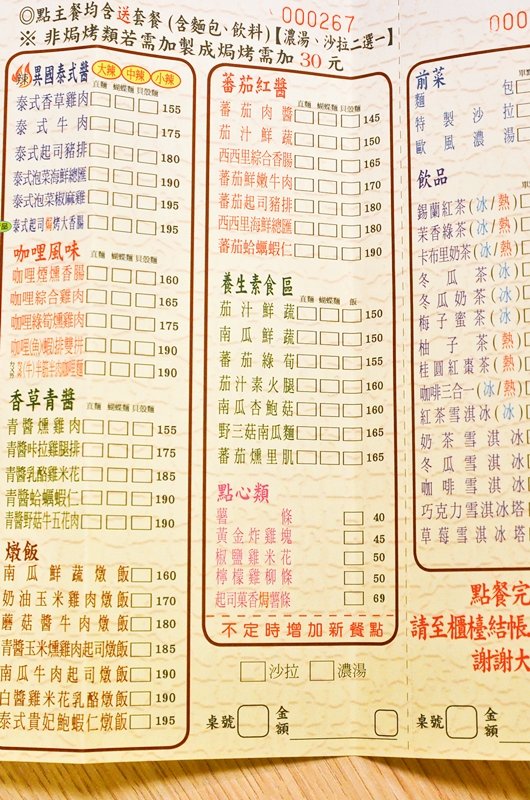 ◎點主餐均含送套餐 (含麵包、飲料)【濃湯、沙拉二選一】
000267
※ 非焗烤類若需加製成焗烤需加 30 元
辣 異國泰式醬 大辣 中辣 小辣
直麵 蝴蝶麵 貝殼麵
泰式香草雞肉 155
泰式牛肉 175
泰式起司豬排 180
泰式泡菜海鮮總匯 190
泰式泡菜椒麻雞 195
泰式起司焗烤大香腸 195
咖哩風味
直麵 蝴蝶麵 貝殼麵
咖哩煙燻香腸 160
咖哩綜合雞肉 165
咖哩綠筍燻雞肉 175
咖哩(魚)蝦排雙拼 190
190
香草青醬
直麵 蝴蝶麵 貝殼麵
青醬燻雞肉 155
青醬咔拉雞腿排 175
青醬乳酪雞米花 185
青醬蛤蠣蝦仁 190
青醬野菇牛五花肉 190
燉飯
南瓜鮮蔬燉飯 160
奶油玉米雞肉燉飯 170
蘑菇醬牛肉燉飯 180
青醬玉米燻雞肉起司燉飯 185
南瓜牛肉起司燉飯 190
白醬雞米花乳酪燉飯 190
泰式貴妃鮑蝦仁燉飯 195
蕃茄紅醬
直麵 蝴蝶麵 貝殼麵
蕃茄肉醬 145
茄汁鮮蔬 150
西西里綜合香腸 165
蕃茄鮮嫩牛肉 170
蕃茄起司豬排 180
西西里海鮮總匯 180
蕃茄蛤蠣蝦仁 190
養生素食區
直麵 蝴蝶麵 飯
茄汁鮮蔬 150
南瓜鮮蔬 150
蕃茄綠筍 155
茄汁素火腿 160
南瓜杏鮑菇 160
野三菇南瓜麵 165
蕃茄燻里肌 165
點心類
薯條 40
黃金炸雞塊 45
椒鹽雞米花 50
檸檬雞柳條 50
起司菓香焗薯條 69
不定時增加新餐點
沙拉 濃湯
桌號 金額
0002
前菜
麵包
特製沙拉
歐風濃湯
飲品
錫蘭紅茶(冰/熱)
茉香綠茶(冰/熱)
卡布里奶茶(冰/熱)
冬瓜茶(冰)
冬瓜奶茶(冰)
梅子蜜茶(冰)
柚子茶(熱)
桂圓紅棗茶(熱)
咖啡三合一(冰/熱)
紅茶雪淇冰(冰)
奶茶雪淇冰
冬瓜雪淇冰
咖啡雪淇冰
巧克力雪淇塔
草莓雪淇塔
點餐完
請至櫃檯結帳
謝謝大
桌號 金額